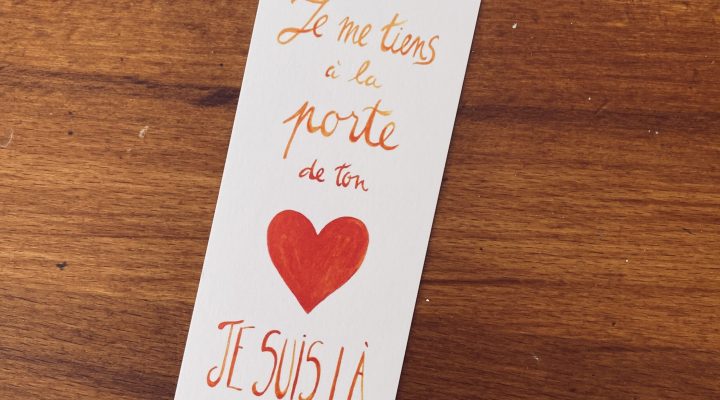 Je me tiens
à la
porte
de ton
JE SUIS LÀ